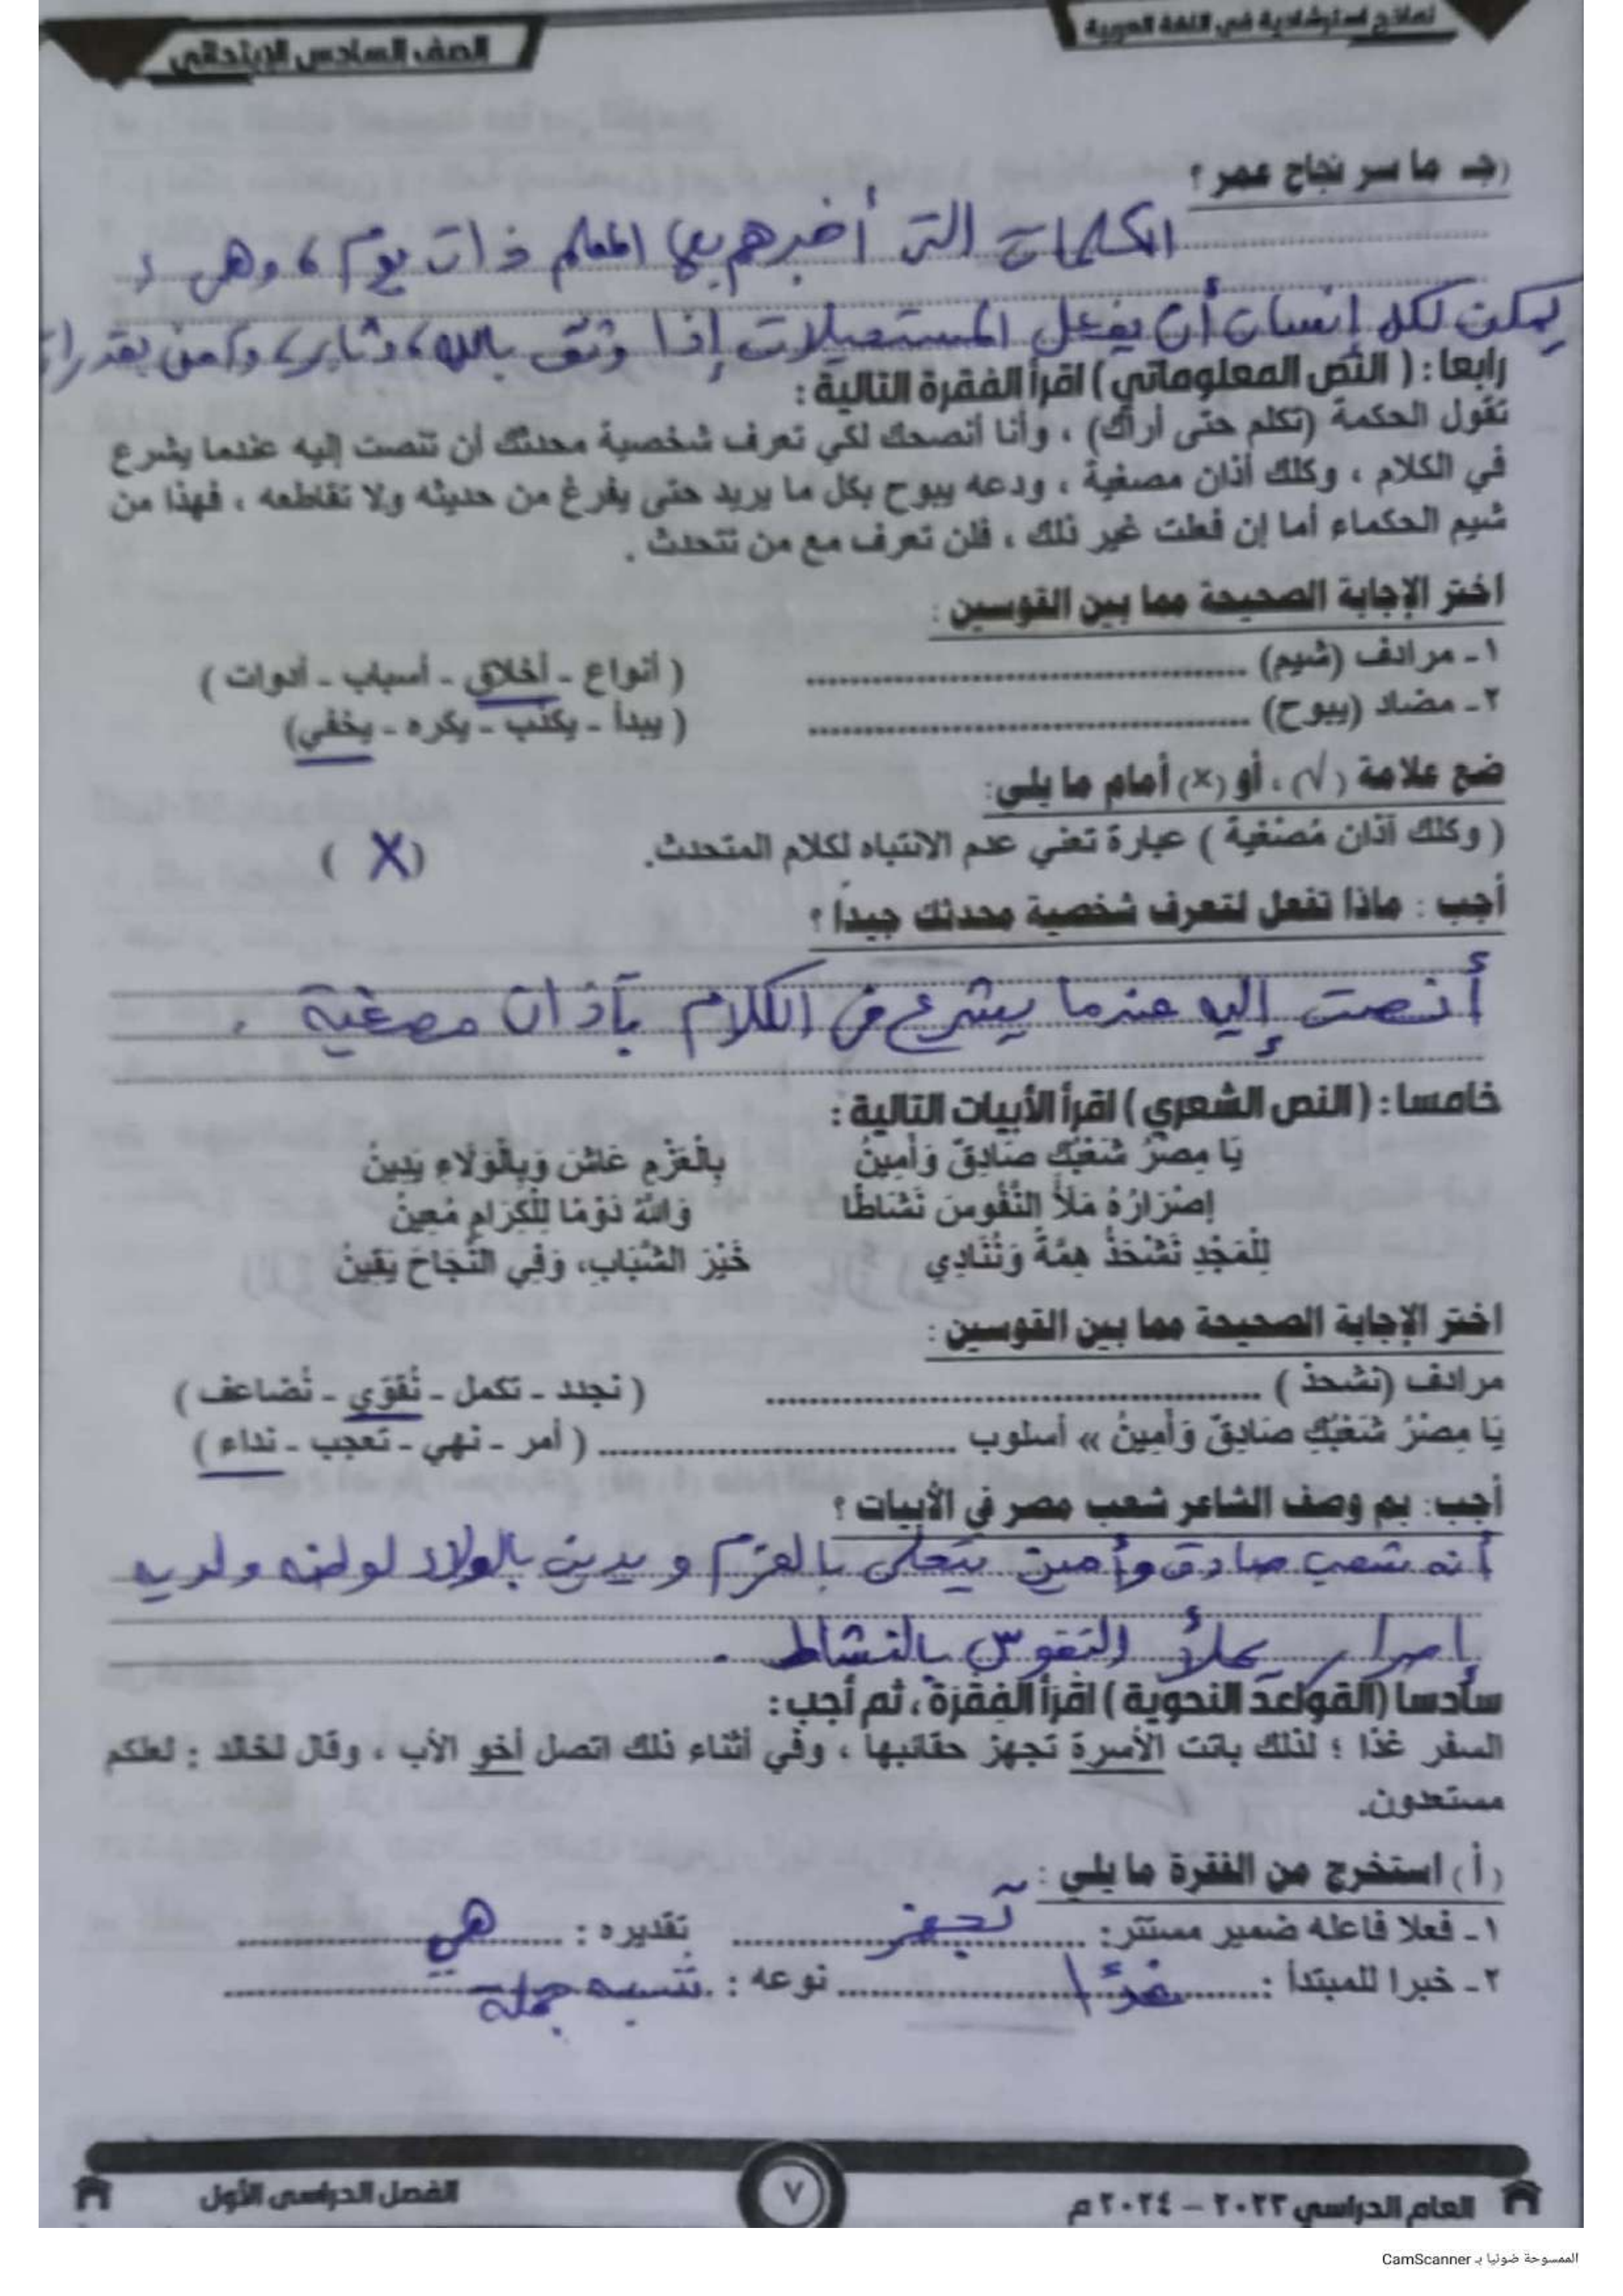 نماذج استرشادية في اللغة العربية
الصف السادس الإبتدائي
(جـ ما سر نجاح عمر ؟
الكلمات التى أخبرهم بها المعلم ذات يوم ، وهى :
يمكن لكل إنسان أن يفعل المستحيلات إذا وثق بالله ، وثابر ، وآمن بقدراته
رابعا : ( النص المعلوماتي ) اقرأ الفقرة التالية :
تقول الحكمة (تكلم حتى أراك) ، وأنا أنصحك لكي تعرف شخصية محدثك أن تنصت إليه عندما يشرع
في الكلام ، وكلك آذان مصغية ، ودعه يبوح بكل ما يريد حتى يفرغ من حديثه ولا تقاطعه ، فهذا من
شيم الحكماء أما إن فعلت غير ذلك ، فلن تعرف مع من تتحدث .
اختر الإجابة الصحيحة مما بين القوسين :
١ـ مرادف (شيم) .................... ( أنواع ـ أخلاق ـ أسباب ـ أدوات )
٢ـ مضاد (يبوح) .................... ( يبدأ ـ يكتب ـ يكره ـ يخفي)
ضع علامة (√) ، أو (×) أمام ما يلي:
( وكلك آذان مُصْغية ) عبارة تعني عدم الانتباه لكلام المتحدث. ( X )
أجب : ماذا تفعل لتعرف شخصية محدثك جيداً ؟
أنصت إليه عندما يشرع فى الكلام بآذان مصغية .
خامسا : ( النص الشعري ) اقرأ الأبيات التالية :
يَا مِصْرُ شَعْبُكِ صَادِقٌ وَأَمِينُ بِالْعَزْمِ عَاشَ وَبِالْوَلَاءِ يَدِينُ
إِصْرَارُهُ مَلَأَ النُّفُوسَ نَشَاطًا وَاللهُ دَوْمًا لِلْكِرَامِ مُعِينُ
لِلْمَجْدِ نَشْحَذُ هِمَّةً وَنُنَادِي خَيْرَ الشَّبَابِ، وَفِي النَّجَاحَ يَقِينُ
اختر الإجابة الصحيحة مما بين القوسين :
مرادف (نشحذ ) .................... ( نجدد ـ نكمل ـ نُقَوّي ـ نُضاعف )
يَا مِصْرُ شَعْبُكِ صَادِقٌ وَأَمِينُ » أسلوب .................... ( أمر ـ نهي ـ تعجب ـ نداء )
أجب: بم وصف الشاعر شعب مصر في الأبيات ؟
أنه شعب صادق وأمين يتحلى بالعزم ويدين بالولاء لوطنه ولديه
إصرار يملأ النفوس بالنشاط .
سادسا (القواعد النحوية ) اقرأ الفقرة ، ثم أجب:
السفر غدًا ؛ لذلك باتت الأسرة تجهز حقائبها ، وفي أثناء ذلك اتصل أخو الأب ، وقال لخالد : لعلكم
مستعدون.
(أ) استخرج من الفقرة ما يلي :
١ـ فعلا فاعله ضمير مستتر: تجهز تقديره : هي
٢ـ خبرا للمبتدأ : غدًا نوعه : شبه جملة
العام الدراسي ٢٠٢٣ – ٢٠٢٤ م
٧
الفصل الدراسى الأول
الممسوحة ضوئيا بـ CamScanner